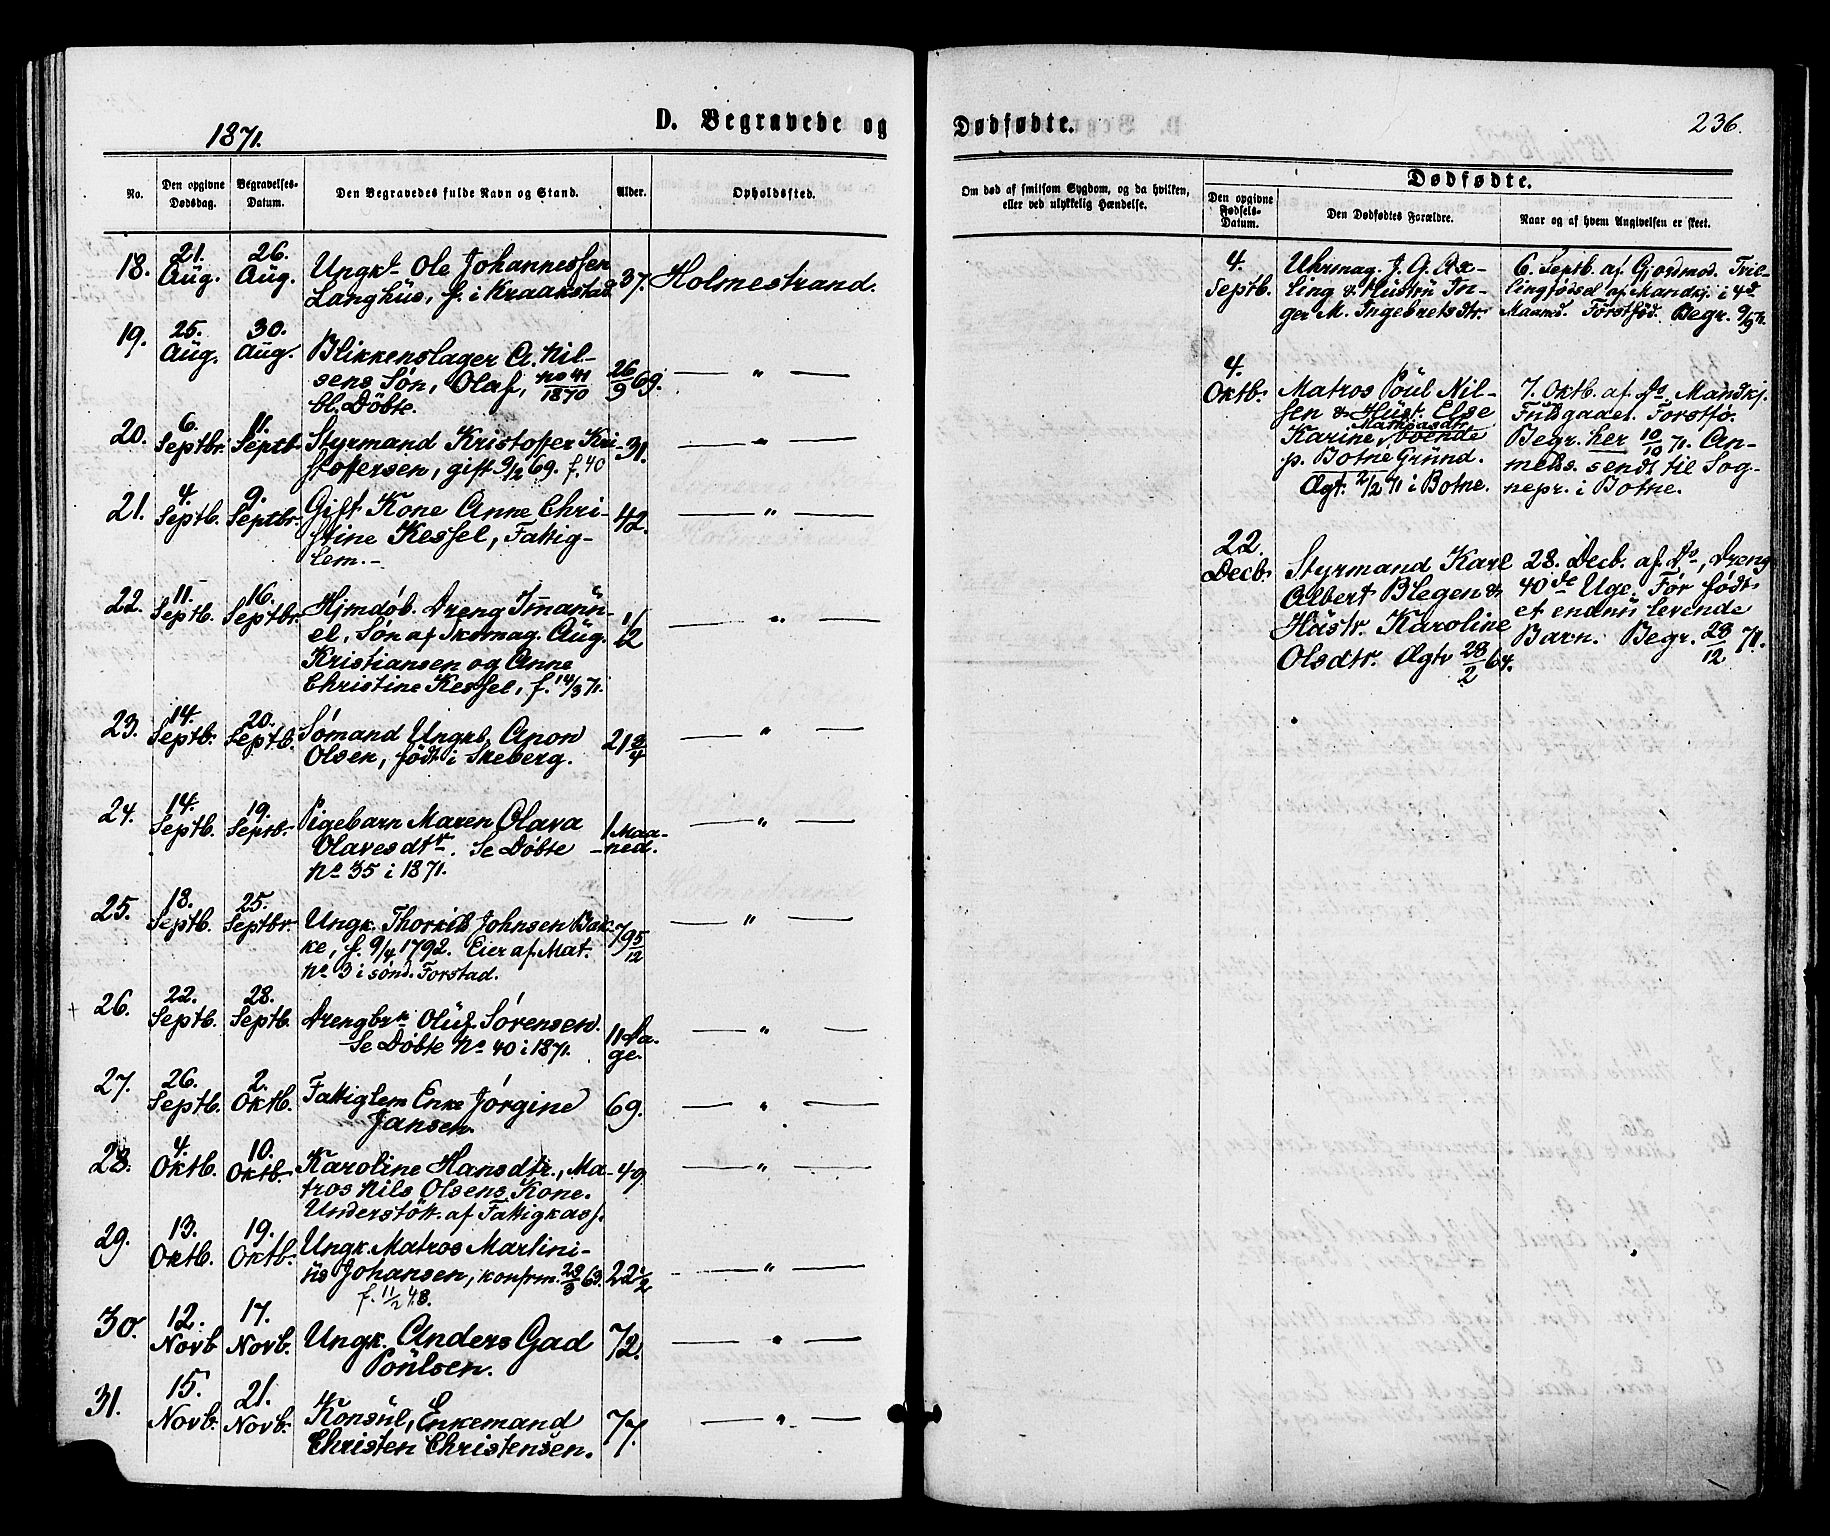 1871.
D. Begravede og
No.
Den opgivne Dødsdag.
Begravelses-Datum.
Den Begravedes fulde Navn og Stand.
Alder.
Opholdssted.
18.
21. Aug.
26. Aug.
Ungk. Ole Johannessen
Langhus, f. i Kraakstad
37.
Holmestrand.
19.
25. Aug.
30. Aug.
Blikkenslager A. Nil-
sens Søn, Olaf, No 41 1870
bl. Døbte.
26/9 69.
— " —
20.
6. Septbr.
11. Septb
Styrmand Kristoffer Kri-
stoffersen, gift 9/12 69. f. 40
31.
— " —
21.
4. Septb.
9. Septbr.
Gift Kone Anne Chri-
stine Kessel, Fattig-
lem.-
42.
— " —
22.
11. Septb.
16. Septbr.
Hjmdøb. Dreng Imanu-
el, Søn af Skomag. Aug.
Kristiansen og Anne
Christine Kessel, f. 14/3 71.
1/2
— " —
23.
14. Septb.
20. Septb.
Sømand Ungk. Anon
Olsen, født i Skeberg.
21 3/4
— " —
24.
14. Septb.
19. Septbr.
Pigebarn Maren Olava
Olavesdtr. Se Døbte
No 35 i 1871.
1 Maa-
ned.
— " —
25.
18. Septb.
25. Septbr.
Ungk. Thorkild Johnsen Bak-
ke, f. 9/4 1792. Eier af Mat.
No 3 i sønd. Forstad.
79 5/12
— " —
26.
22. Septb.
28. Septb.
Drengbrn Oluf Sørensen.
Se Døbte No 40 i 1871.
11 Da-
ge.
— " —
27.
26. Septb.
2. Oktb.
Fattiglem Enke Jørgine
Jansen.
69.
— " —
28.
4. Oktb.
10. Oktb.
Karoline Hansdtr., Ma-
tros Nils Olsens Kone.
Understøtt. af Fattigkass.
49
— " —
29.
13. Oktb.
19. Oktb.
Ungk. Matros Martini-
us Johansen, konfrm. 29/3 63.
f. 11/2 48.
22 1/2
— " —
30.
12. Novb
17. Novb.
Ungk. Anders Gad
Poulsen.
72.
— " —
31.
15. Novb.
21. Novb.
Konsul, Enkemand
Christen Christensen.
77.
— " —
Dødfødte.
236.
Om død af smitsom Sygdom, og da hvilken,
eller ved ulykkelig Hændelse.
Dødfødte.
Den opgivne Fødsels-Datum.
Den Dødfødtes Forældre.
Naar og af hvem Angivelsen er skeet.
4. Septb.
Uhrmag. J. G. Ax-
ling & Hustru In-
ger M. Ingebretsdtr.
6. Septb. af Gjordmod. Tvil-
lingfødsel af Mandkj. i 4de
Maaned. Førstfød. Begr. 9/9 71.
4. Oktb.
Matros Poul Nil-
sen & Hust. Else
Karine Mathiasdtr, boende
p. Botne Grund.
Ægt. 2/2 71 i Botne.
7. Oktb. af Do Mandkj.
Fuldgaaet. Førstfø.
Begr. her 10/10 71. An-
meds. sendt til Sog-
nepr. i Botne.
22. Decb.
Styrmand Karl
Albert Blegen &
Hustr. Karoline
Olsdtr. Ægtv 28/2 64.
28. Decb. af Do, Dreng
40de Uge. Før født
et endnu levende
Barn. Begr. 28/12 71.